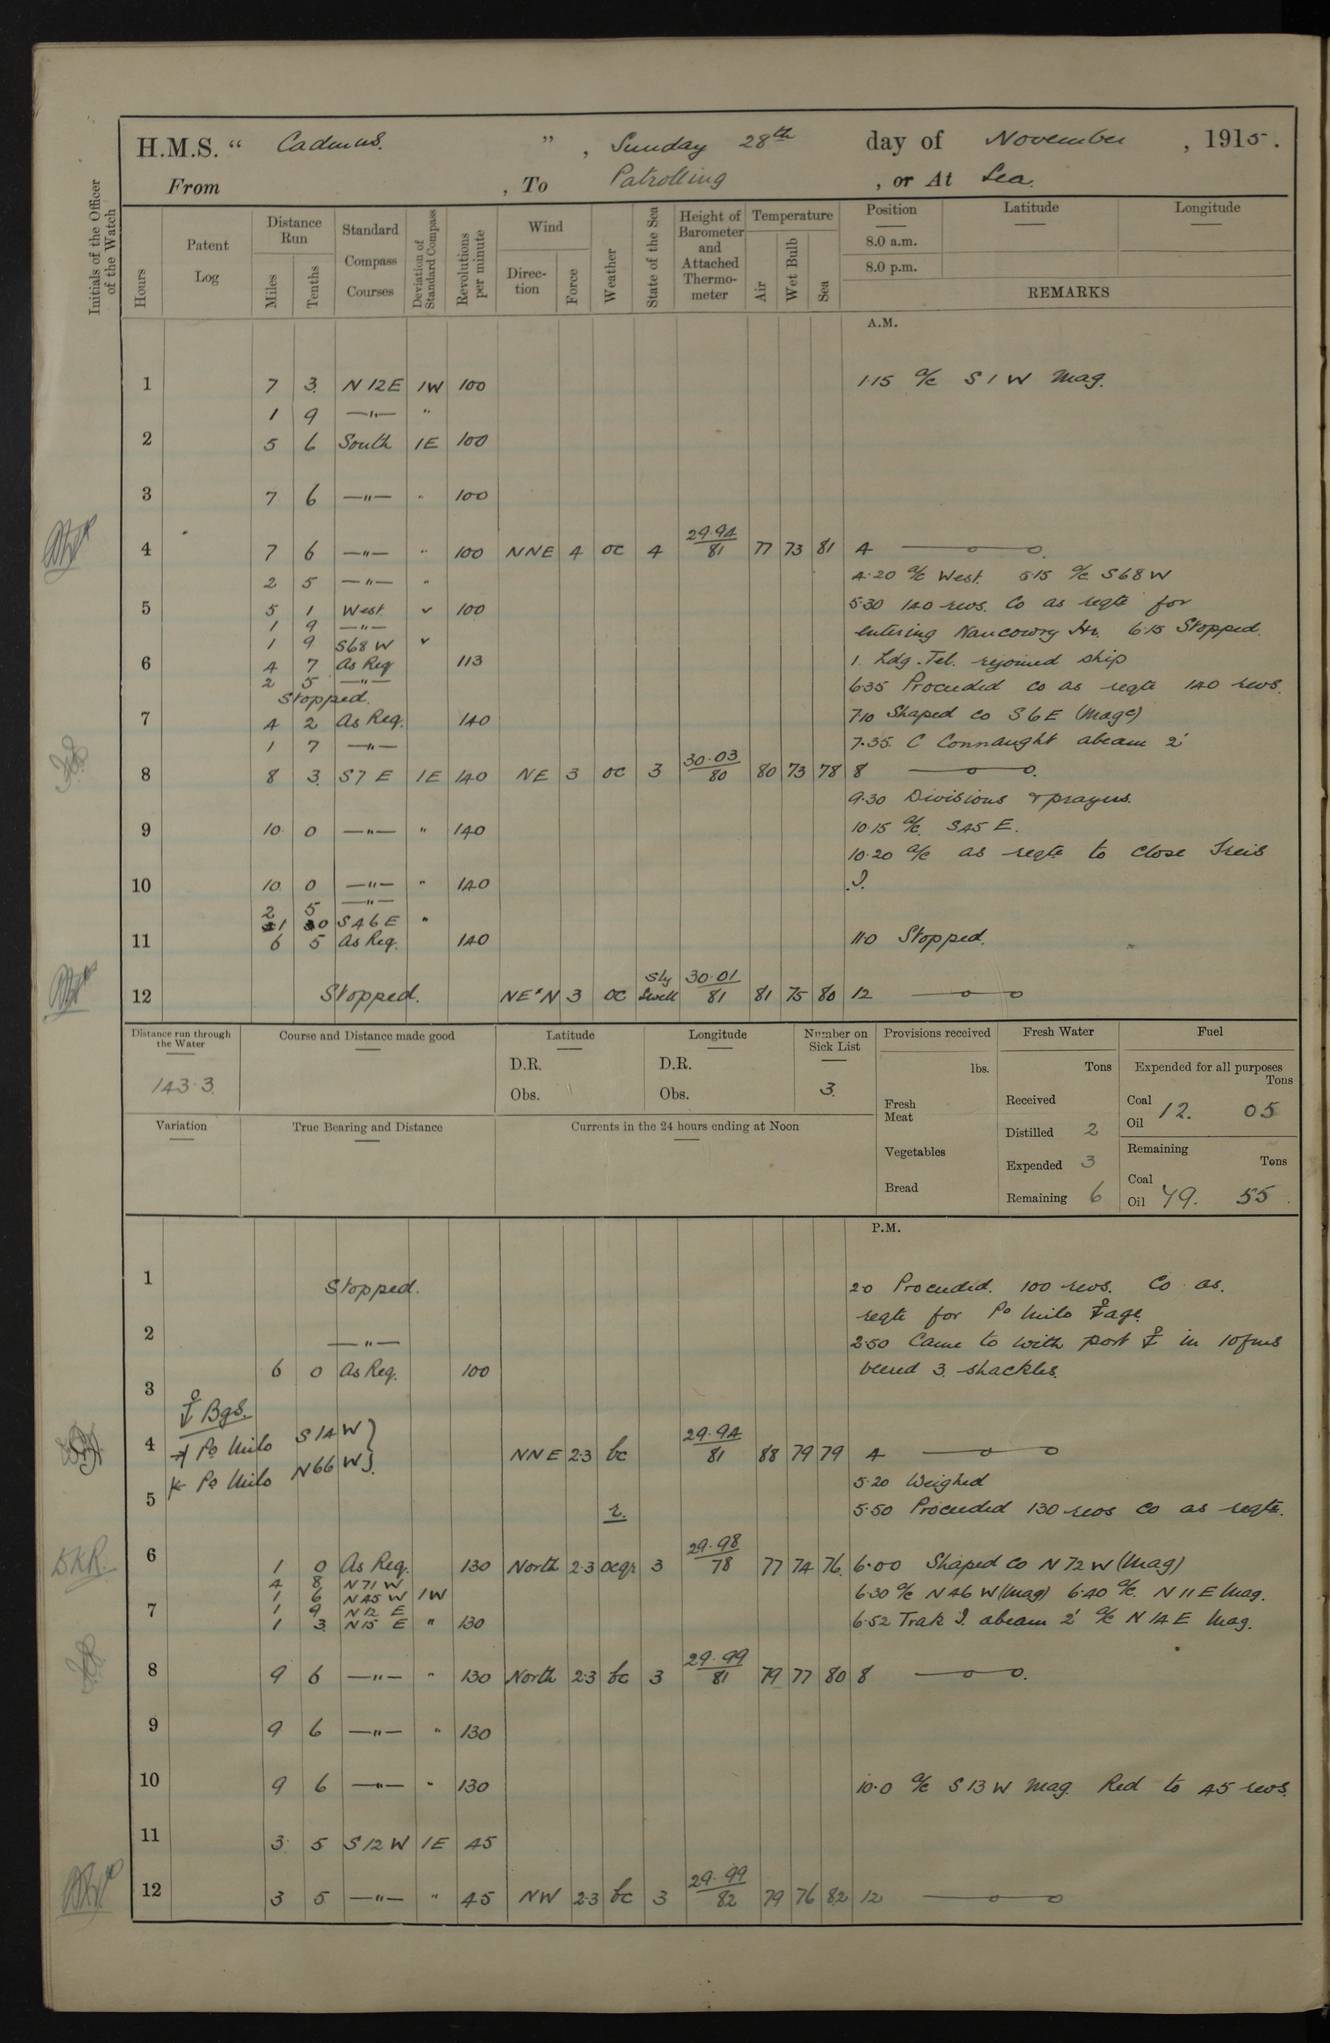 H.M.S. “ Cadmus. ” , Sunday 28th day of November , 1915.
From , To Patrolling , or At Sea.
Initials of the Officer of the Watch
Hours
Patent Log
Distance Run
Miles
Tenths
Standard Compass Courses
Deviation of Standard Compass
Revolutions per minute
Wind
Direc-tion
Force
Weather
State of the Sea
Height of Barometer and Attached Thermo-meter
Temperature
Air
Wet Bulb
Sea
Position
Latitude
Longitude
8.0 a.m.
8.0 p.m.
REMARKS
A.M.
1 7 3 N 12 E 1W 100 1.15 a/c S 1 W Mag.
1 9 —"— "
2 5 6 South 1E 100
3 7 6 —"— " 100
4 7 6 —"— " 100 NNE 4 oc 4 29.94/81 77 73 81 4
2 5 —"— " 4.20 a/c West. 5.15 a/c S68W
5 5 1 West. 100 5.30 140 revs. Co as reqte for
1 9 —"— entering Nancowry Hr. 6.15 Stopped.
1 9 S68 W
6 4 7 As Req 113 1. Ldg. Tel. rejoined ship
2 5 —"— 6.35 Proceeded co as reqte 140 revs.
Stopped.
7 4 2 As Req. 140 7.10 Shaped co S 6 E (Magc)
1 7 —"— 7.35. C Connaught abeam 2'
8 8 3 S7 E 1E 140 NE 3 oc 3 30.03/80 80 73 78 8
9.30 Divisions & prayers.
9 10 0 —"— " 140 10.15 a/c. S45 E.
10.20 a/c as reqte to close Treis
10 10 0 —"— " 140 I.
2 5 —"—
1 0 S46 E "
11 6 5 As Req. 140 11.0 Stopped.
12 Stopped. NE'N 3 oc Sly Swell 30.01/81 81 75 80 12
Distance run through the Water
143.3.
Course and Distance made good
Latitude
D.R.
Obs.
Longitude
D.R.
Obs.
Number on Sick List
3.
Provisions received
lbs.
Fresh Meat
Vegetables
Bread
Fresh Water
Tons
Received
Distilled 2
Expended 3
Remaining 6
Fuel
Expended for all purposes
Tons
Coal
Oil 12. 05
Remaining
Tons
Coal
Oil 79. 55
Variation
True Bearing and Distance
Currents in the 24 hours ending at Noon
P.M.
1 Stopped. 2.0 Proceeded. 100 revs. Co as.
reqte for Po Milo ⚓age.
2 —"— 2.50 Came to with port ⚓ in 10 fms
6 0 As Req. 100 veered 3. shackles.
3
⚓ Bgs.
4 Po Milo S14W} NNE 2.3 bc 29.94/81 88 79 79 4
Po Milo N66W}. 5.20 Weighed
5 r. 5.50 Proceeded 130 revs co as reqte.
BKR. 6 1 0 As Req. 130 North 2.3 ocqr 3 29.98/78 77 74 76. 6.00 Shaped co N 72 W (Mag)
4 8 N71 W
1 6 N45 W 1W 6.30 a/c N 46 W (Mag) 6.40 a/c. N 11 E Mag.
7 1 9 N12 E
1 3. N15 E " 130 6.52 Trak I. abeam 2' a/c N 14 E Mag.
8 9 6 —"— " 130 North 2.3 bc 3 29.99/81 79 77 80 8
9 9 6 —"— " 130
10 9 6 —"— " 130 10.0 a/c S 13 W Mag. Red to 45 revs.
11 3 5 S12 W 1E 45
12 3 5 —"— " 45 NW 2.3 bc 3 29.99/82 79 76 82 12